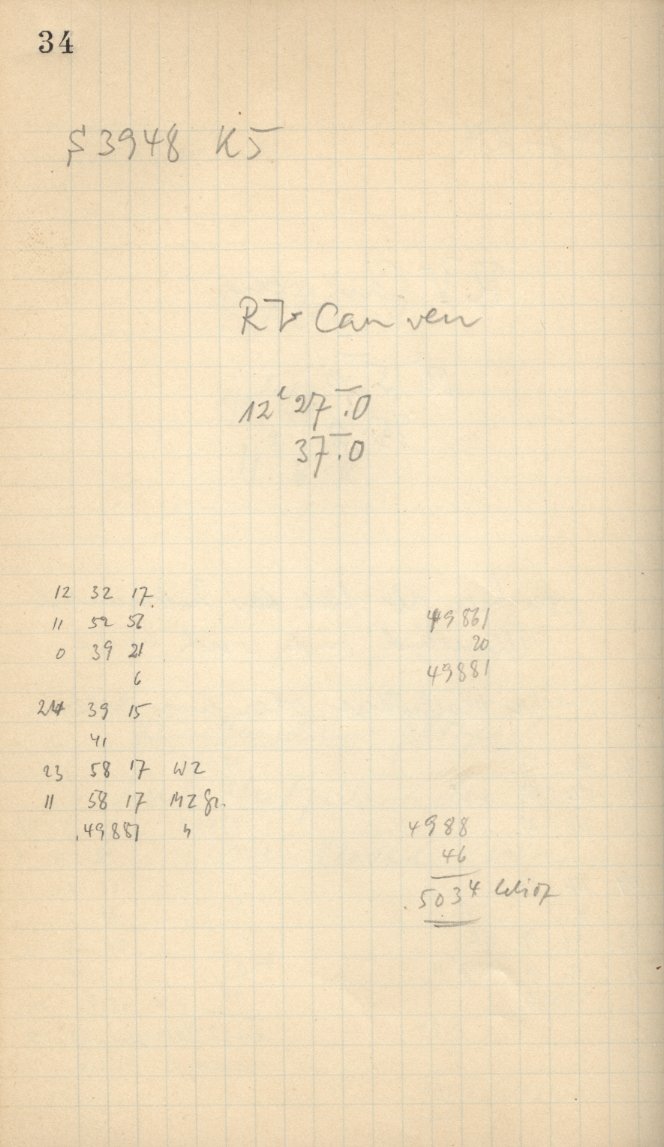 34
S 3948 K5
RZ Can ven
12ʰ 27ᵐ.0
37ᵐ.0
12 32 17.
11 52 56
0 39 21
6
24 39 15
41
23 58 17 WZ
11 58 17 MZ Gr.
.49881
49861
20
49881
4988
46
.5034 helioz